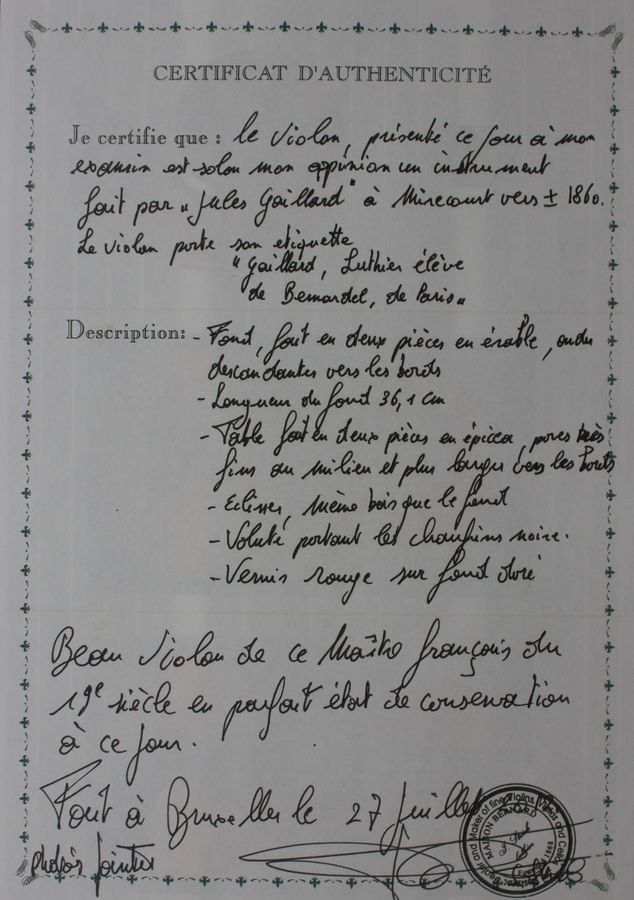 CERTIFICAT D'AUTHENTICITÉ
Je certifie que : le violon, présenté ce jour à mon
examin est selon mon oppinion un instrument
fait par „Jules Gaillard" à Mirecourt vers ± 1860.
Le violon porte son etiquette
"Gaillard, Luthier élève
de Bernardel, de Paris"
Description: - Fond, fait en deux pièces en érable, ondes
descandantes vers les bords
- Longueur du fond 36,1 cm
- Table fait en deux pièces en épicea, pores très
fins au milieu et plus larges vers les bords
- Eclisses, même bois que le fond
- Volute portant les chanfrins noirs.
- Vernis rouge sur fond doré
Beau violon de ce Maître français du
19e siècle en parfait état de conservation
à ce jour.
Fait à Bruxelles le 27 Juillet
photos jointes
Dealer and Maker of fine Violins, Violas and Cellos
MAISON BERNARD